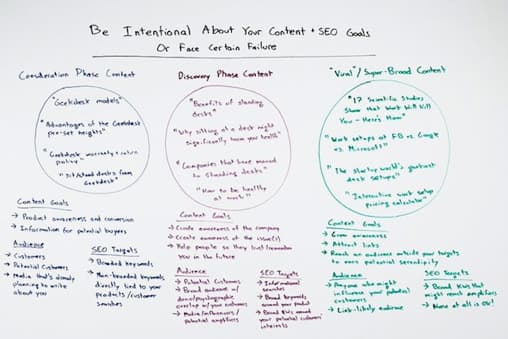 Be Intentional About Your Content + SEO Goals
Or Face Certain Failure
Consideration Phase Content
"Geekdesk models"
"Advantages of the Geekdesk
pre-set heights"
"Geekdesk warranty + return
policy"
desks from
Geekdesk"
Content Goals
→ Product awareness and conversion
→ Information for potential buyers
Audience
→ Customers
→ Potential Customers
→ Media that's already
planning to write
about you
SEO Targets
→ Branded keywords
→ Non-branded keywords
directly tied to your
products/customer
searches
Discovery Phase Content
"Benefits of standing
desks"
"Why sitting at a desk might
significantly harm your health"
"Companies that have moved
to standing desks"
"How to be healthy
at work"
Content Goals
→ Create awareness of the company
→ Create awareness of the issue(s)
→ Help people so they trust/remember
you in the future
Audience
→ Potential Customers
→ Broad audience w/
demo/psychographic
overlap w/ your customers
→ Media/influencers/
potential amplifiers
SEO Targets
→ Informational
searches
→ Broad keywords
around your product
→ Broad KWs around
your potential customers'
interests
"Viral"/Super-Broad Content
"17 Scientific Studies
Show that Work Will Kill
You - Here's How"
"Work setups at FB vs. Google
vs. Microsoft"
"The startup world's
desk setups"
"Interactive work setup
pricing calculator"
Content Goals
→ Grow awareness
→ Attract links
→ Reach an audience outside your targets
to earn potential serendipity
Audience
→ Anyone who might
influence your potential
customers
→ Link-likely audience
SEO Targets
→ Broad KWs that
might reach amplifiers
→ None at all is OK!